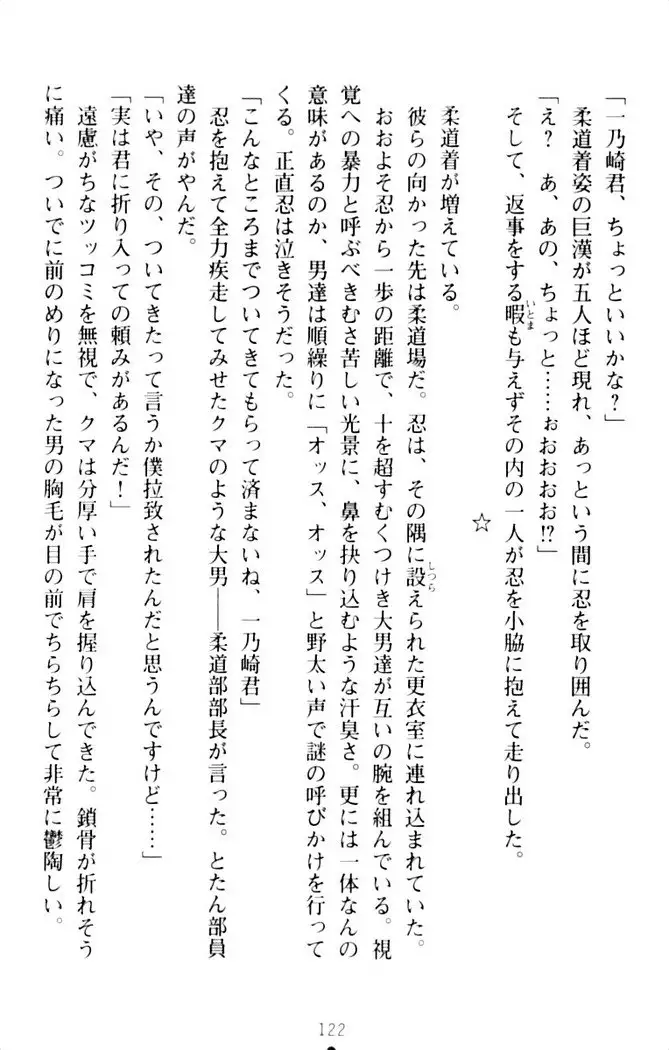 「一乃崎君、ちょっといいかな？」
柔道着姿の巨漢が五人ほど現れ、あっという間に忍を取り囲んだ。
「え？　あ、あの、ちょっと……ぉおおおお!?」
そして、返事をする暇も与えずその内の一人が忍を小脇に抱えて走り出した。
いとま
☆
柔道着が増えている。
彼らの向かった先は柔道場だ。忍は、その隅に設えられた更衣室に連れ込まれていた。
しつら
おおよそ忍から一歩の距離で、十を超すむくつけき大男達が互いの腕を組んでいる。視
覚への暴力と呼ぶべきむさ苦しい光景に、鼻を抉り込むような汗臭さ。更には一体なんの
意味があるのか、男達は順繰りに「オッス、オッス」と野太い声で謎の呼びかけを行って
くる。正直忍は泣きそうだった。
「こんなところまでついてきてもらって済まないね、一乃崎君」
忍を抱えて全力疾走してみせたクマのような大男――柔道部部長が言った。とたん部員
達の声がやんだ。
「いや、その、ついてきたって言うか僕拉致されたんだと思うんですけど……」
「実は君に折り入っての頼みがあるんだ！」
遠慮がちなツッコミを無視で、クマは分厚い手で肩を握り込んできた。鎖骨が折れそう
に痛い。ついでに前のめりになった男の胸毛が目の前でちらちらして非常に鬱陶しい。
122